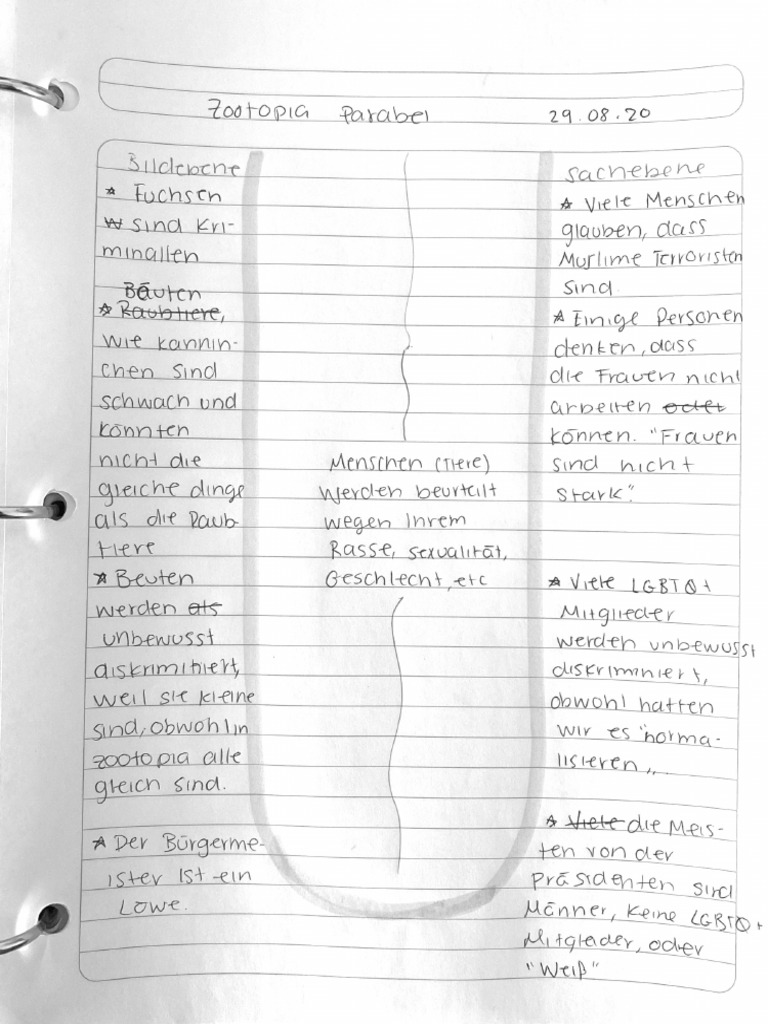 Zootopia Parabel 29.08.20
Bildebene
* Fuchsen
W sind Kri-
minallen
Bäuten
* Raubtiere,
wie kannin-
chen sind
schwach und
könnten
nicht die
gleiche dinge
als die Raub-
tiere
* Beuten
werden als
unbewusst
diskriminiert,
weil sie kleine
sind, obwohl in
zootopia alle
gleich sind.
* Der Bürgerme-
ister ist ein
Löwe.
Menschen (Tiere)
werden beurteilt
wegen Ihrem
Rasse, sexualität,
Geschlecht, etc
Sachebene
* Viele Menschen
glauben, dass
Muslime Terroristen
sind.
* Einige Personen
denken, dass
die Frauen nicht
arbeiten oder
können. "Frauen
sind nicht
stark".
* Viele LGBTQ+
Mitglieder
werden unbewusst
diskriminiert,
obwohl hatten
wir es "norma-
lisieren"...
* Viele die Meis-
ten von der
Präsidenten sind
Männer, keine LGBTQ+
Mitglieder, oder
"Weiß"